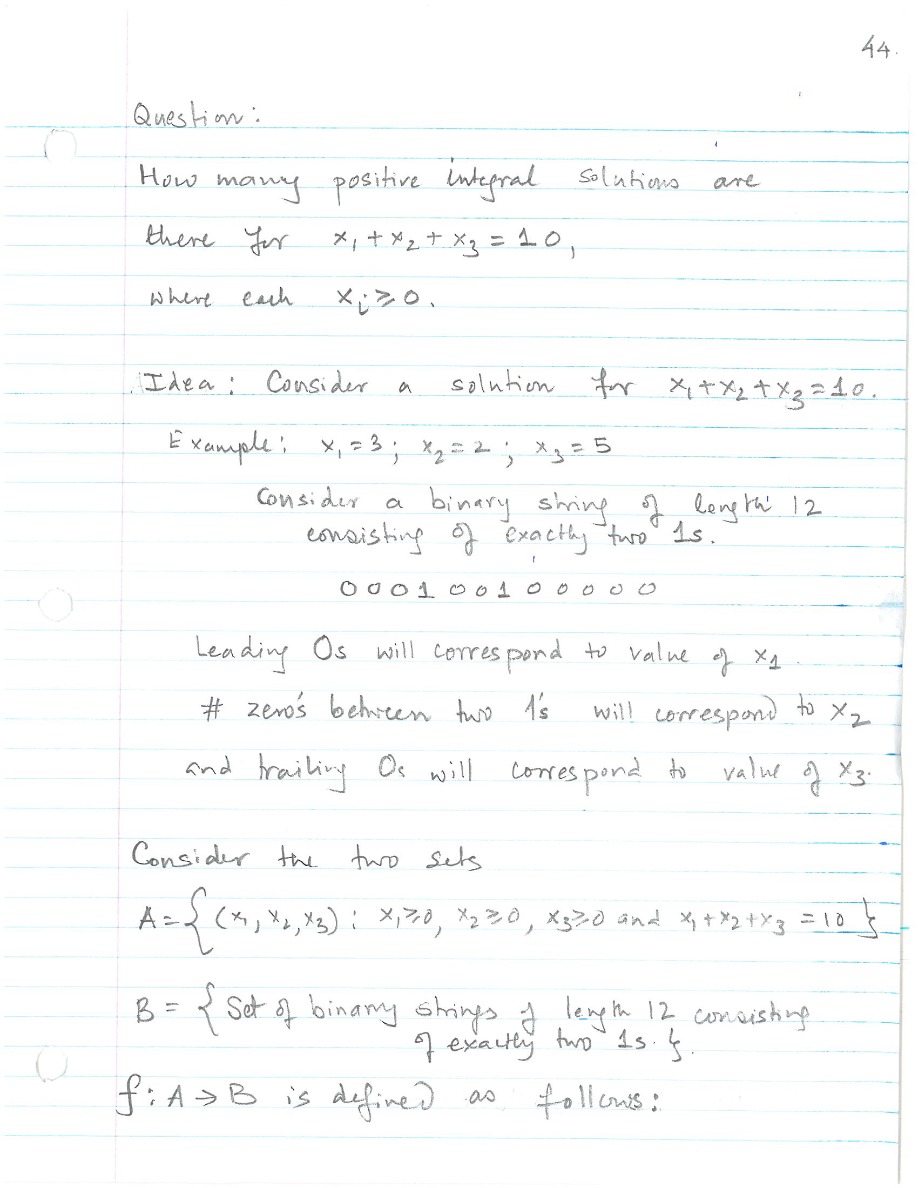 44.
Question:
How many positive integral solutions are
there for x₁ + x₂ + x₃ = 10,
where each xᵢ ≥ 0.
Idea: Consider a solution for x₁ + x₂ + x₃ = 10.
Example: x₁ = 3; x₂ = 2; x₃ = 5
Consider a binary string of length 12
consisting of exactly two 1s.
000100100000
Leading 0s will correspond to value of x₁.
# zero's between two 1's will correspond to x₂
and trailing 0s will correspond to value of x₃.
Consider the two sets
A = { (x₁, x₂, x₃) : x₁≥0, x₂≥0, x₃≥0 and x₁+x₂+x₃ = 10 }
B = { Set of binary strings of length 12 consisting
of exactly two 1s. }.
f: A → B is defined as follows: